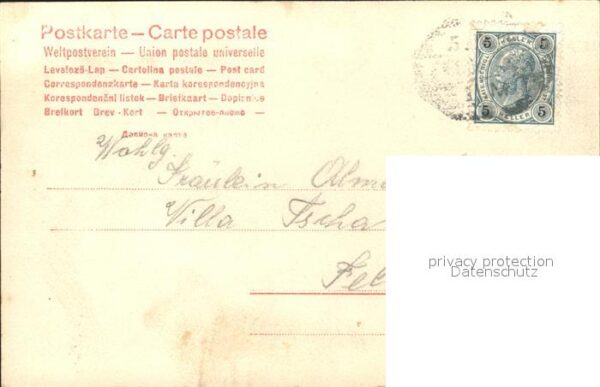 Postkarte — Carte postale
Weltpostverein — Union postale universelle
Levelező-Lap — Cartolina postale — Post card
Correspondenzkarte — Karta korespondencyjna
Korespondenční listek — Briefkaart — Dopisnice
Brefkort Brev-Kort — Открытое-письмо —
Дописна карта
5 5
5 5
Wohlg.
Fräulein Alme
Villa Tscha
Fel
privacy protection
Datenschutz